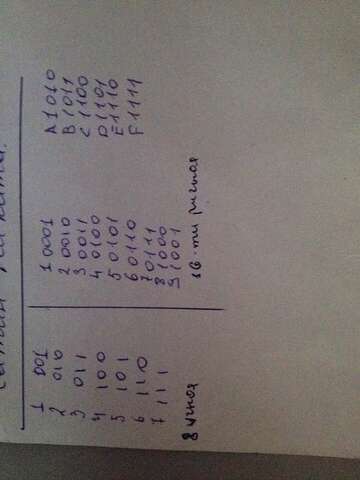 1 001
2 010
3 011
4 100
5 101
6 110
7 111
8 ичная
1 0001
2 0010
3 0011
4 0100
5 0101
6 0110
7 0111
8 1000
9 1001
16-ти ричная
A 1010
B 1011
C 1100
D 1101
E 1110
F 1111